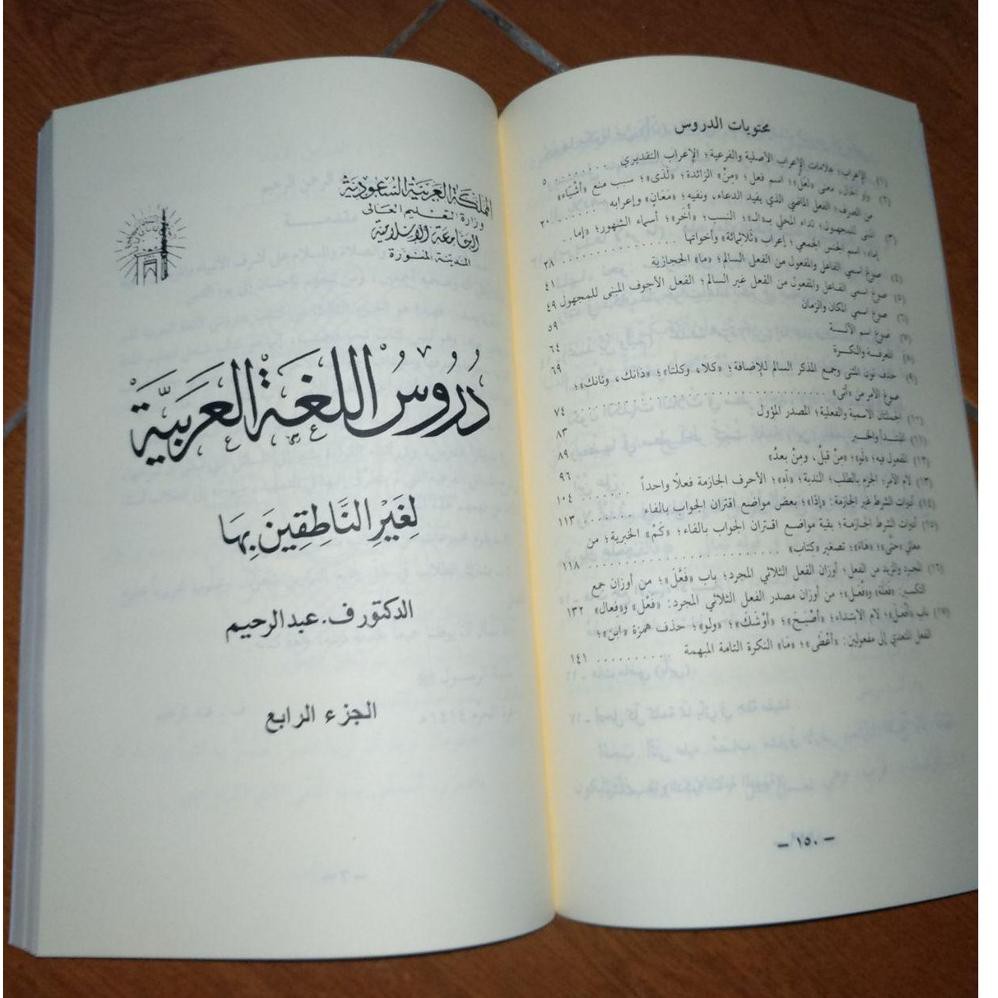 محتويات الدروس
(١) الإعراب؛ علامات الإعراب الأصلية والفرعية؛ الإعراب التقديري . . . . . . ٥
(٢) واو الحال، معنى «لَعَلّ»؛ اسم فعل؛ «مِنْ» الزائدة؛ «لَدَى»؛ سبب منع «أشْيَاء»
من الصرف؛ الفعل الماضي الذي يفيد الدعاء، ونفيه؛ «مَعَانٍ» وإعرابه
(٣) المبني للمجهول؛ نداء المحلي بـ«ال»؛ النسب؛ «أُخَر»؛ أسماء الشهور؛ «إما...
إما»، اسم الجنس الجمعي؛ إعراب «ثلاثمائة» وأخواتها . . . ٣٨
(٤) صوغ اسمي الفاعل والمفعول من الفعل السالم؛ «ما» الحجازية ٤١
(٥) صوغ اسمي الفاعل والمفعول من الفعل غير السالم؛ الفعل الأجوف المبني للمجهول ٤٩
(٦) صوغ اسمي المكان والزمان ٥٩
(٧) صوغ اسم الآلـــة ٦٤
(٨) المعرفــة والنكــرة ٦٩
(٩) حذف نون المثنى وجمع المذكر السالم للإضافة؛ «كلا، وكلتا»؛ «ذانك، وتانك»؛
صوغ الأمر من «أتى» . . . ٧٤
(١٠) الجملتان الاسمية والفعلية؛ المصدر المؤول ٨٣
(١١) المبتــدأ والخبــر ٨٩
(١٢) المفعول فيه؛ «لو»؛ «مِنْ قبلُ، ومِنْ بعدُ» ٩٦
(١٣) لام الأمر؛ الجزم بالطلب؛ الندبة؛ «آه»؛ الأحرف الجازمة فعلًا واحداً . . . ١٠٤
(١٤) أدوات الشرط غير الجازمة؛ «إذا»؛ بعض مواضع اقتران الجواب بالفاء ١١٣
(١٥) أدوات الشرط الجازمــة؛ بقية مواضع اقتران الجواب بالفاء؛ «كَمْ» الخبرية؛ من
معاني «حتَّى»؛ «هاءَ»؛ تصغير «كتاب» . . . ١١٨
(١٦) المجرد والمزيد من الفعل؛ أوزان الفعل الثلاثي المجرد؛ باب «فَعَّلَ»؛ من أوزان جمع
التكسير: «فَعَلَة» و«فُعُــل»؛ من أوزان مصدر الفعل الثلاثي المجرد: «فَعْل» و«فعال» ١٣٢
(١٧) باب «أفْعَلَ»؛ لام الابتداء؛ «أَصْبَحَ»؛ «أَوْشَكَ»؛ «ولو»؛ حذف همزة «ابن»؛
الفعل المتعدي إلى مفعولين: «أعْطَى»؛ «مَا» النكرة التامة المبهمة . . . ١٤١
– ١٥٠ –
المملكة العربية السعودية
وزارة التعليم العالى
الجامعة الإسلامية
المدينة المنورة
دُرُوسُ اللغَةِ العَرَبيَّة
لِغَيْرِ النَّاطِقِينَ بِهَا
الدكتور ف. عبدالرحيم
الجزء الرابع